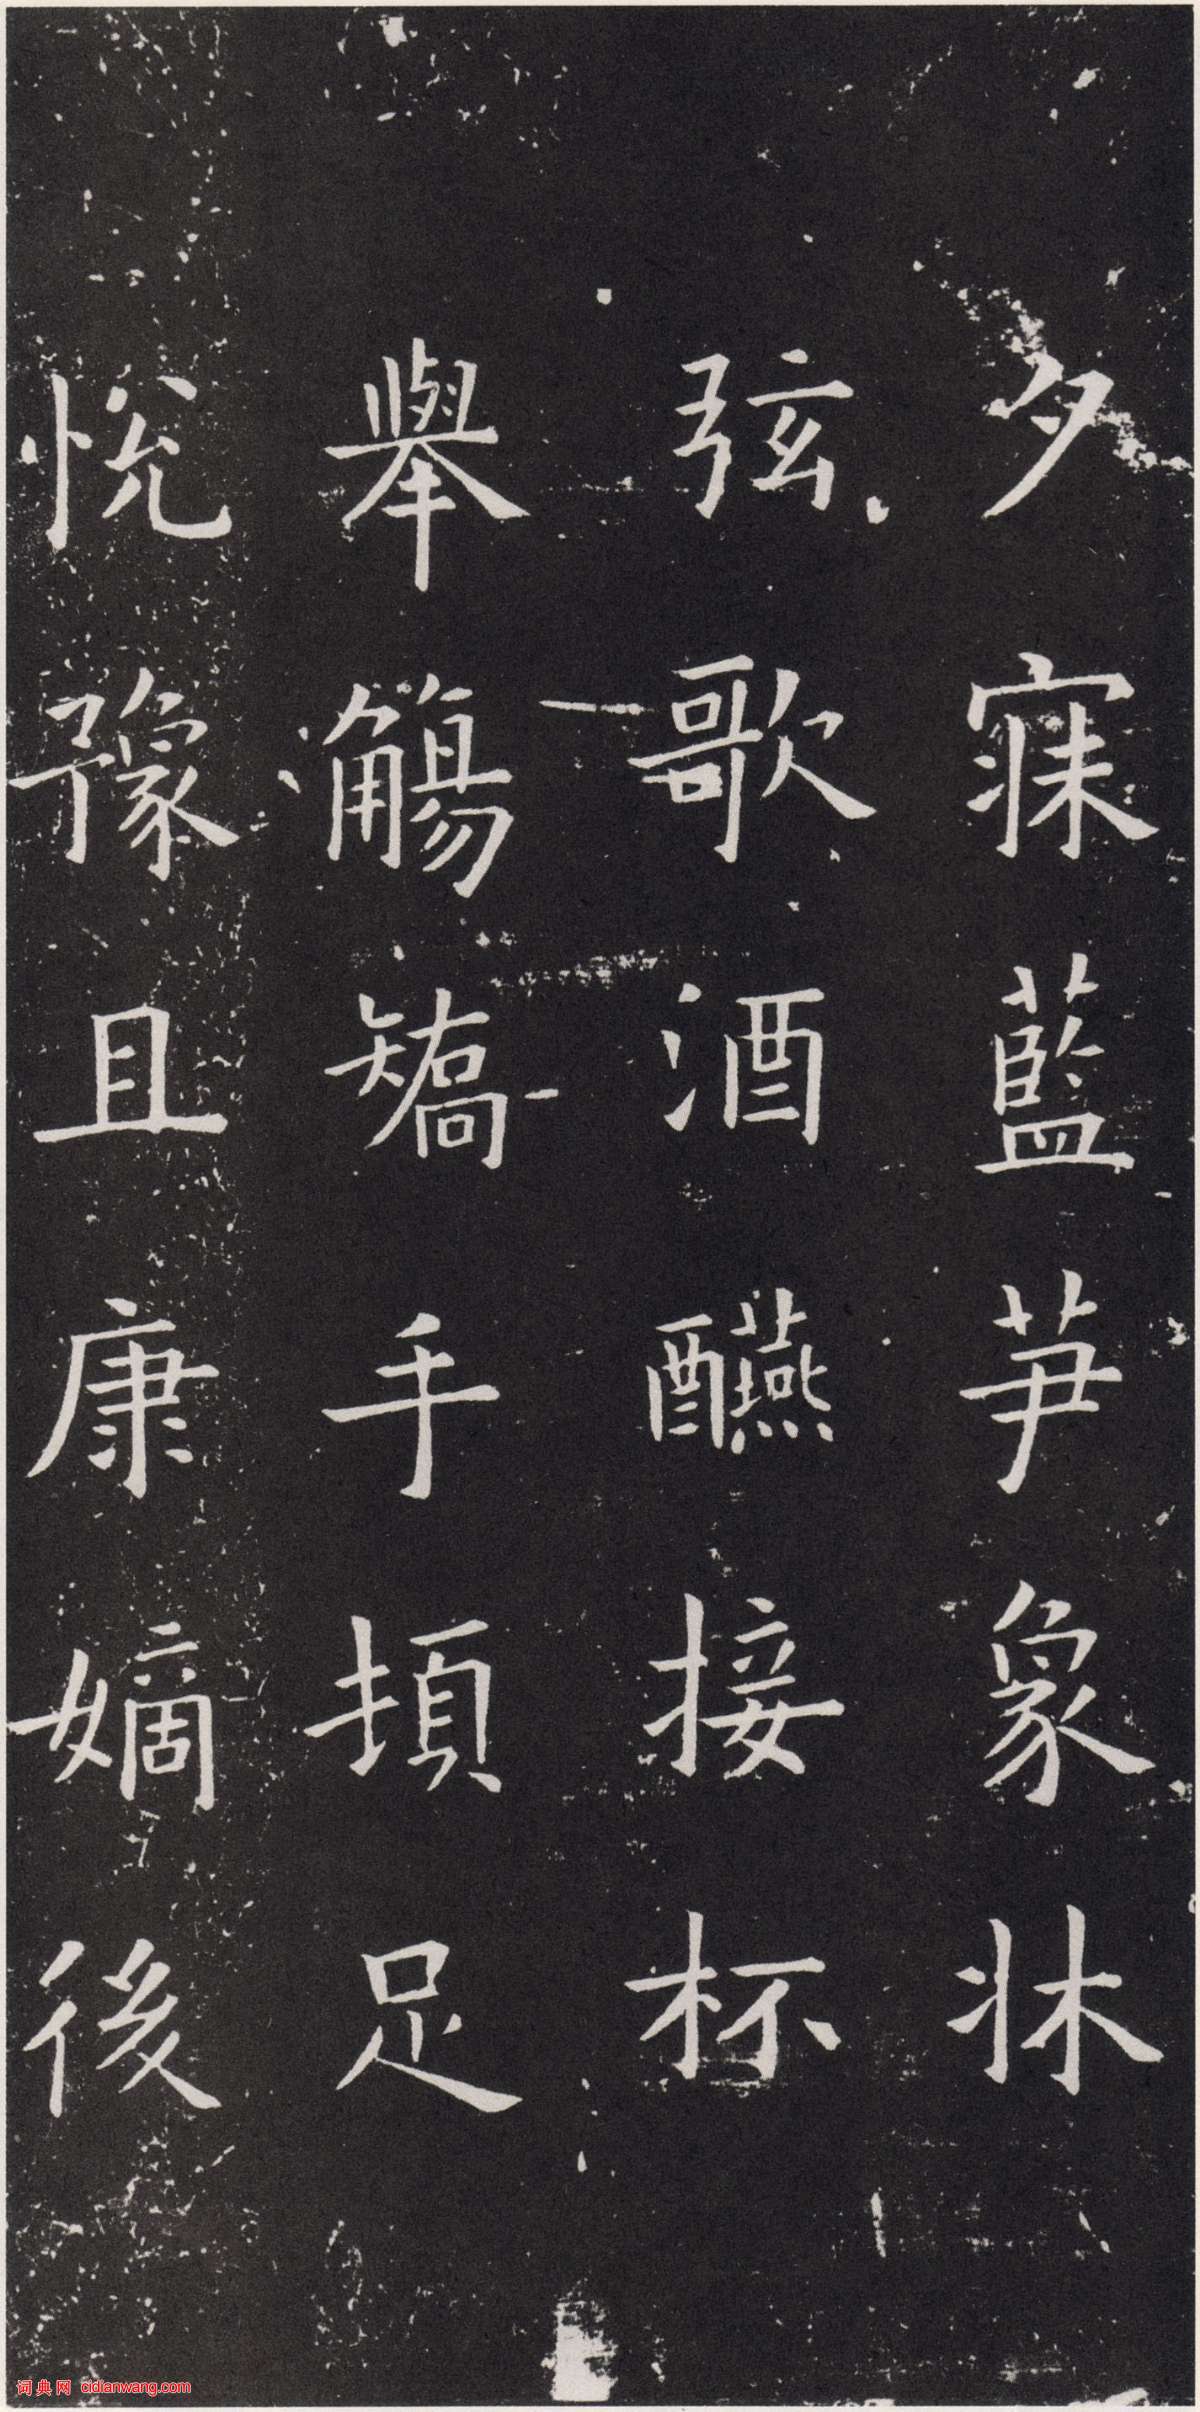 夕寐藍笋象牀
弦歌酒醼接杯
舉觴矯手頓足
悅豫且康嫡後
词典网 cidianwang.com